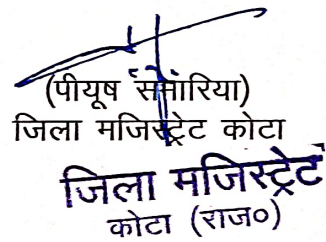 (पीयूष समारिया)
जिला मजिस्ट्रेट कोटा
जिला मजिस्ट्रेट
कोटा (राज०)